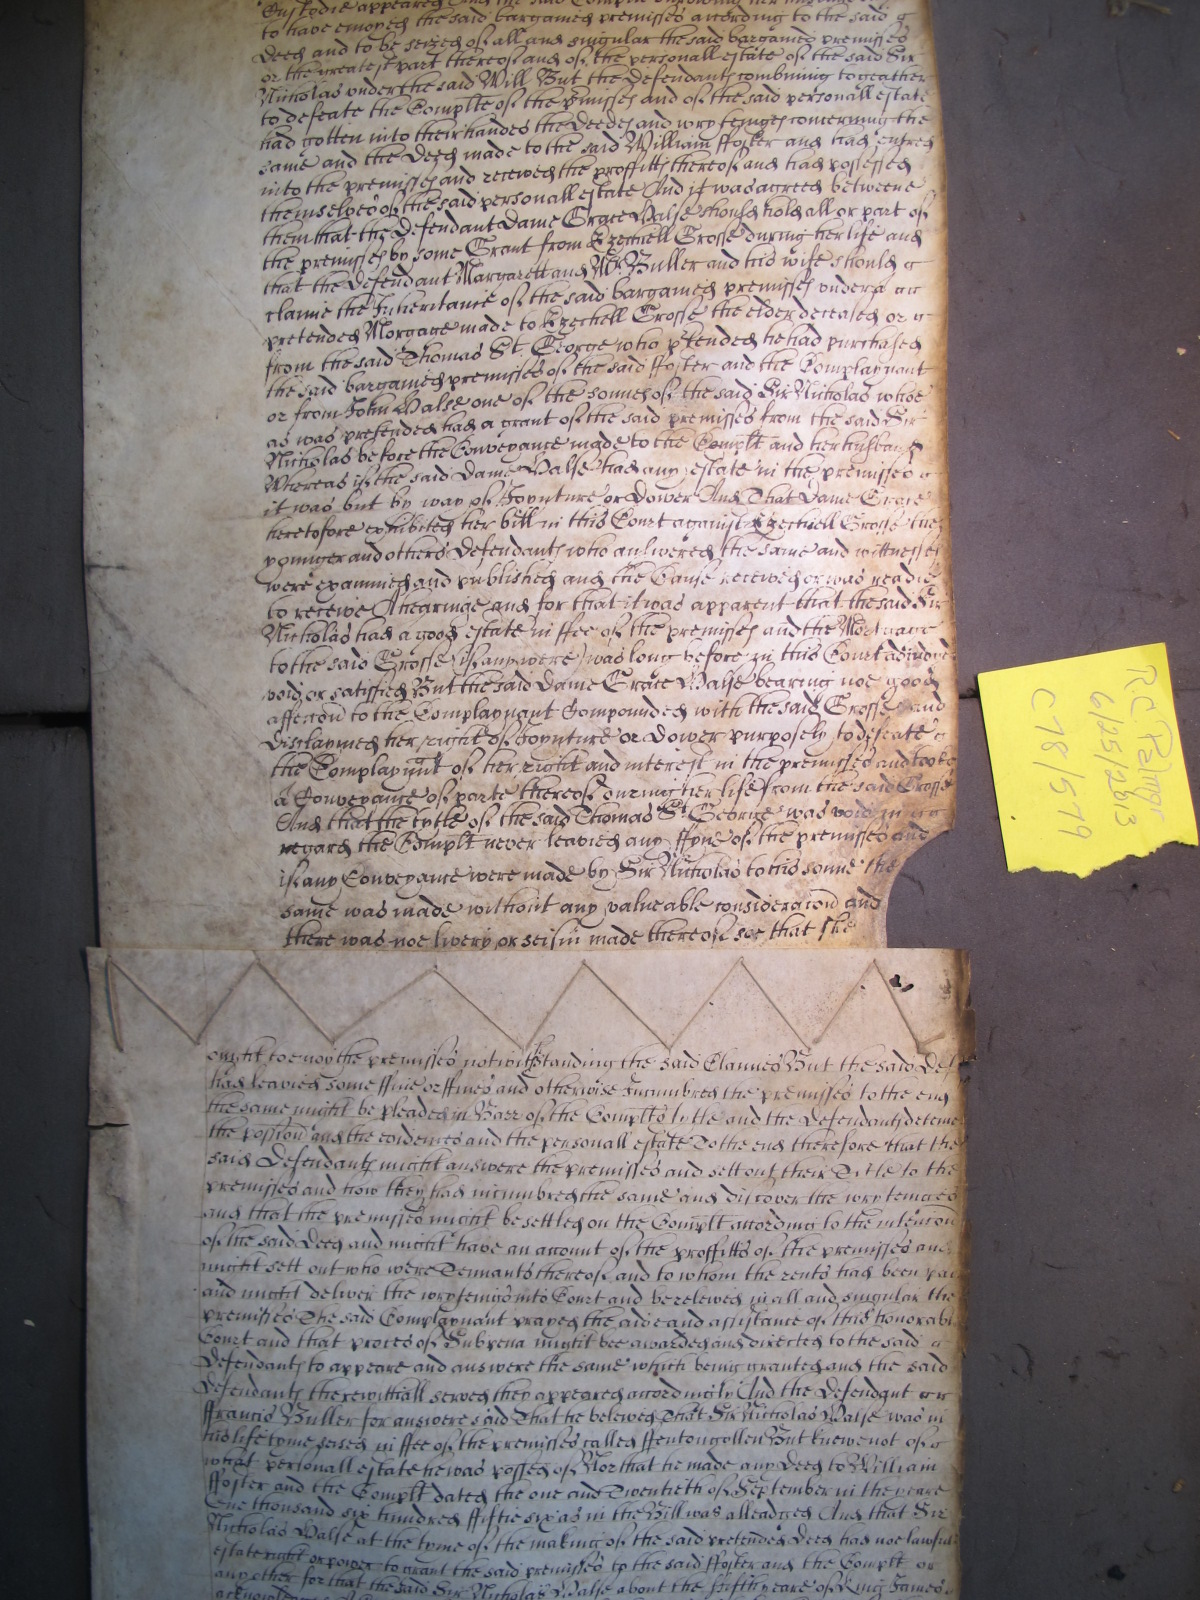 Custodie appeared And the said Complt
to have enioyed the said bargained premisses according to the said
Deed and to be seized of all and singular the said bargained premisses
or the greatest part thereof and of the personall estate of the said Sir
Nicholas under the said Will But the Defendants combining togeather
to defeate the Complte of the premisses and of the said personall estate
had gotten into their handes the Deedes and wrytinges concerning the
same and the Deed made to the said William ffoster and had entred
into the premisses and receved the proffitts thereof and had possessed
themselves of the said personall estate And it was agreed betweene
them that the Defendant Dame Grace Halse should hold all or part of
the premisses by some Grant from Ezechiell Grosse during her life and
that the Defendant Margarett and Mr Buller and his wife should
clayme the Inheritance of the said bargained premisses under a
pretended Morgage made to Ezechiell Grosse the elder deceased or
from the said Thomas St. George who ptended he had purchased
the said bargained premisses of the said ffoster and the Complaynant
or from John Halse one of the sonnes of the said Sir Nicholas whoe
as was pretended had a grant of the said premisses from the said Sir
Nicholas before the Conveyance made to the Complt and her husband
Whereas if the said Dame Halse had any estate in the premisses
it was but by way of Joynture or Dower And That Dame Grace
heretofore exhibited her bill in this Court against Ezechiell Grosse the
younger and others Defendants who answered the same and wittnesses
were examined and published and the Cause receved or was readie
to receive A hearinge and for that it was apparent that the said Sir
Nicholas had a good estate in ffee of the premisses and the Mortgage
to the said Grosse (if any were) was long before in this Court adiudged
void or satisfied But the said Dame Grace Halse bearing noe good
affeccon to the Complaynant Compounded with the said Grosse and
disclaymed her right of Joynture or Dower purposely to defeate
the Complaynant of her right and interest in the premisses and tooke
a Conveyance of parte thereof during her life from the said Grosse
And that the tytle of the said Thomas St. George was void in
regard the Complt never leavied any ffyne of the premisses and
if any Conveyance were made by Sir Nicholas to his sonne the
same was made without any valueable consideracon and
there was noe livery or seisin made thereof soe that she
ought to enioy the premisses notwithstanding the said Claimes But the said Def
had leavied some ffine or ffines and otherwise Incumbred the premisses to the end
the same might be pleaded in Barr of the Complts tytle and the Defendants deteine
the possion and the evidences and the personall estate To the end therefore that the
said Defendants might answere the premisses and sett out their Title to the
premisses and how they had incumbred the same and discover the wrytinges
and that the premisses might be settled on the Complt according to the intencon
of the said Deed and might have an account of the proffitts of the premisses and
might sett out who were Tennants thereof and to whom the rents had been pai
and might deliver the wrytings into Court and be releived in all and singular the
premisses The said Complaynant prayed the aide and assistance of this honorabl
Court and that proces of Subpena might bee awarded and directed to the said
Defendants to appeare and answere the same which being granted and the said
Defendants therewithall served they appeared accordingly And the Defendant
ffrancis Buller for answere said That he beleived That Sir Nicholas Halse was in
his life tyme seised in ffee of the premisses called ffentongollen But knewe not of
what personall estate he was possed of Nor that he made any Deed to William
ffoster and the Complt dated the one and Twentieth of September in the yeare
One thousand six hundred ffiftie six as in the Bill was alleadged And that Sir
Nicholas Halse at the tyme of the making of the said pretended Deed had noe lawfull
estate right or power to grant the said premisses to the said ffoster and the Complt or
any other for that the said Sir Nicholas Halse about the fifth yeare of King James
R.C. Palmer
6/25/2013
C78/579